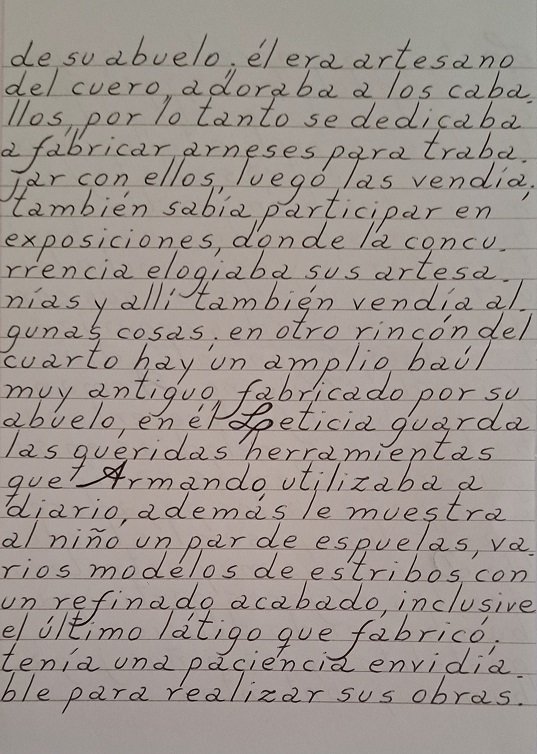 de su abuelo; él era artesano
del cuero, adoraba a los caba-
llos, por lo tanto se dedicaba
a fabricar arneses para traba-
jar con ellos, luego las vendía;
también sabía participar en
exposiciones, donde la concu-
rrencia elogiaba sus artesa-
nías y allí también vendía al-
gunas cosas; en otro rincón del
cuarto hay un amplio baúl
muy antiguo, fabricado por su
abuelo, en él Leticia guarda
las queridas herramientas
que Armando utilizaba a
diario, además le muestra
al niño un par de espuelas, va-
rios modelos de estribos con
un refinado acabado, inclusive
el último látigo que fabricó;
tenía una paciencia envidia-
ble para realizar sus obras.